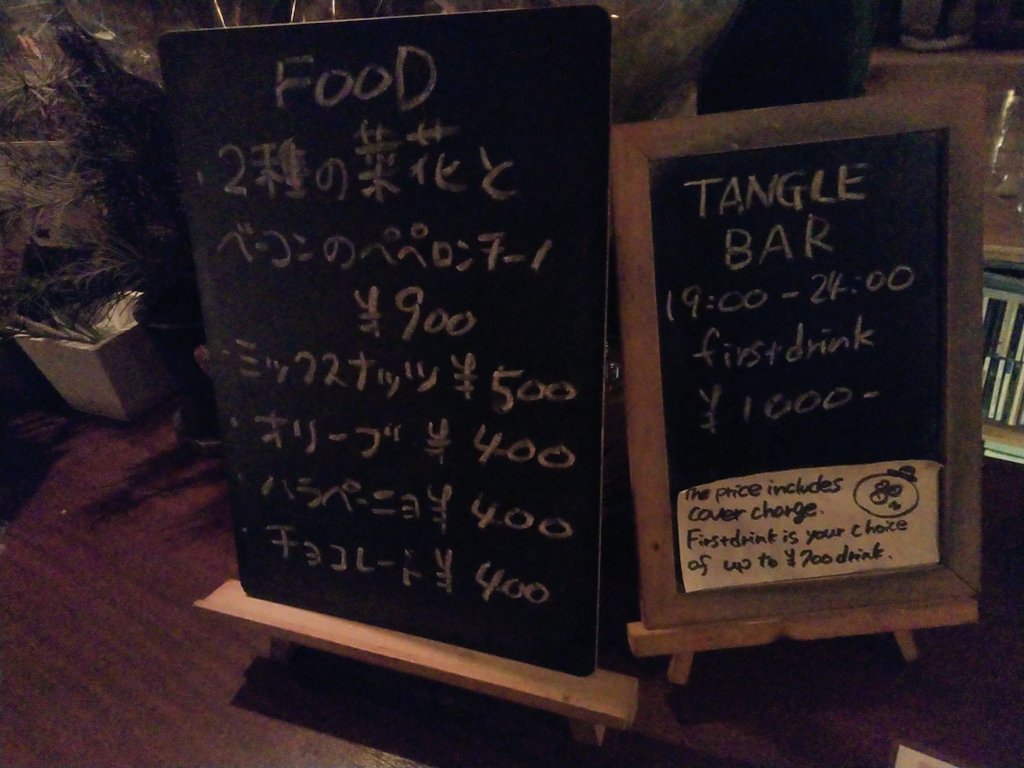 FOOD
・2種の菜花と
ベーコンのペペロンチーノ
¥900
・ミックスナッツ ¥500
・オリーブ ¥400
・ハラペーニョ ¥400
・チョコレート ¥400
TANGLE
BAR
19:00-24:00
first drink
¥1000-
The price includes
cover charge.
First drink is your choice
of up to ¥700 drink.